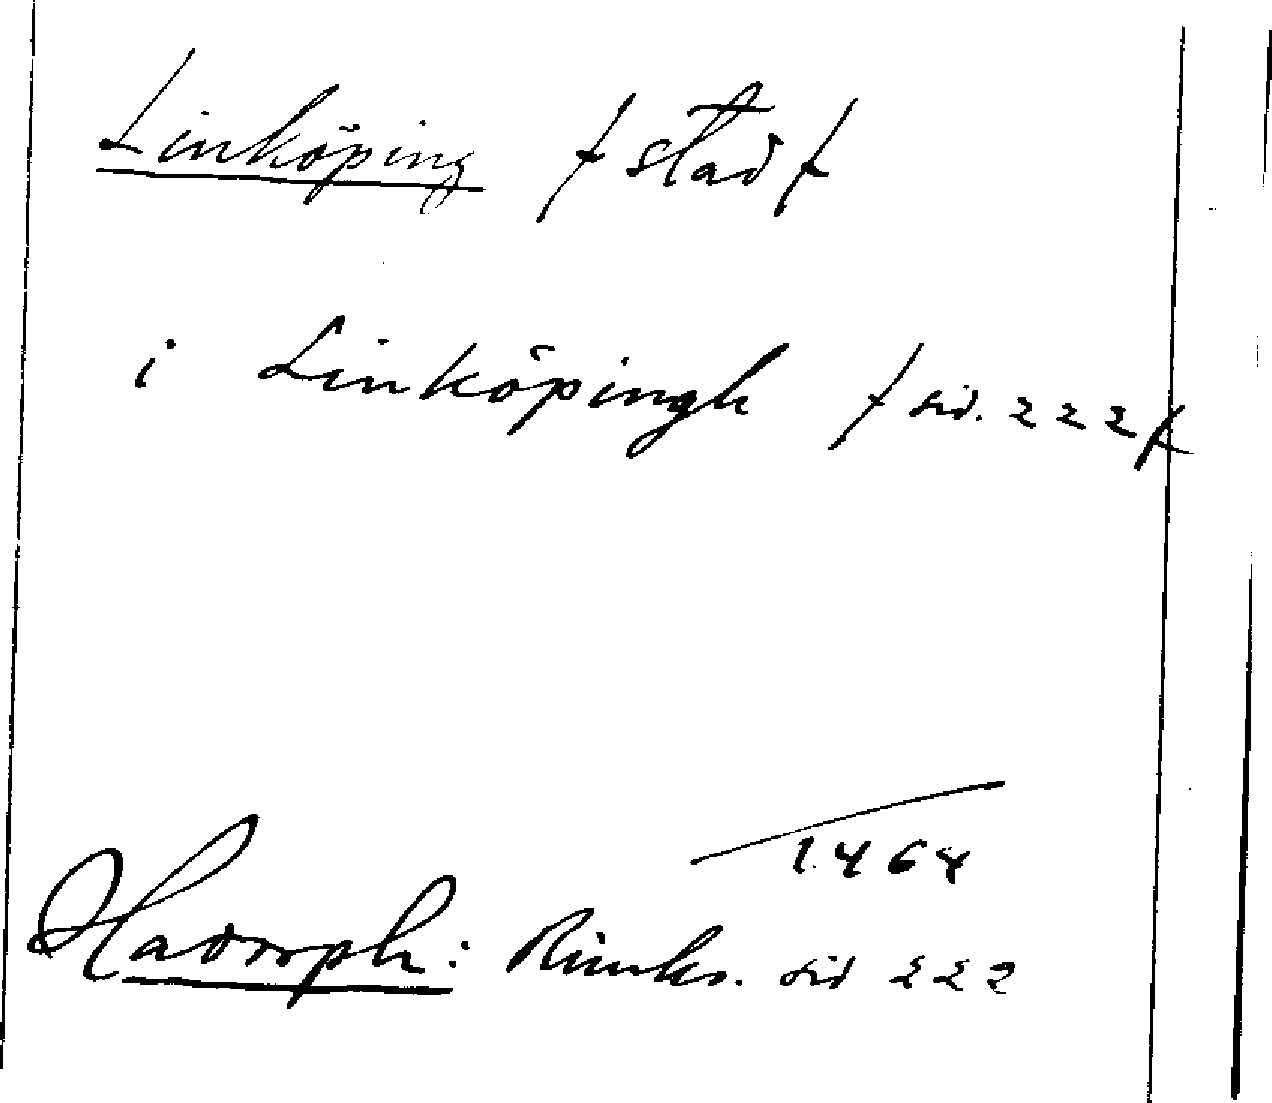 Linköping / stad /
i Linköpingh / sid. 222 /
1464
Hadorph: Rimkr. sid 222